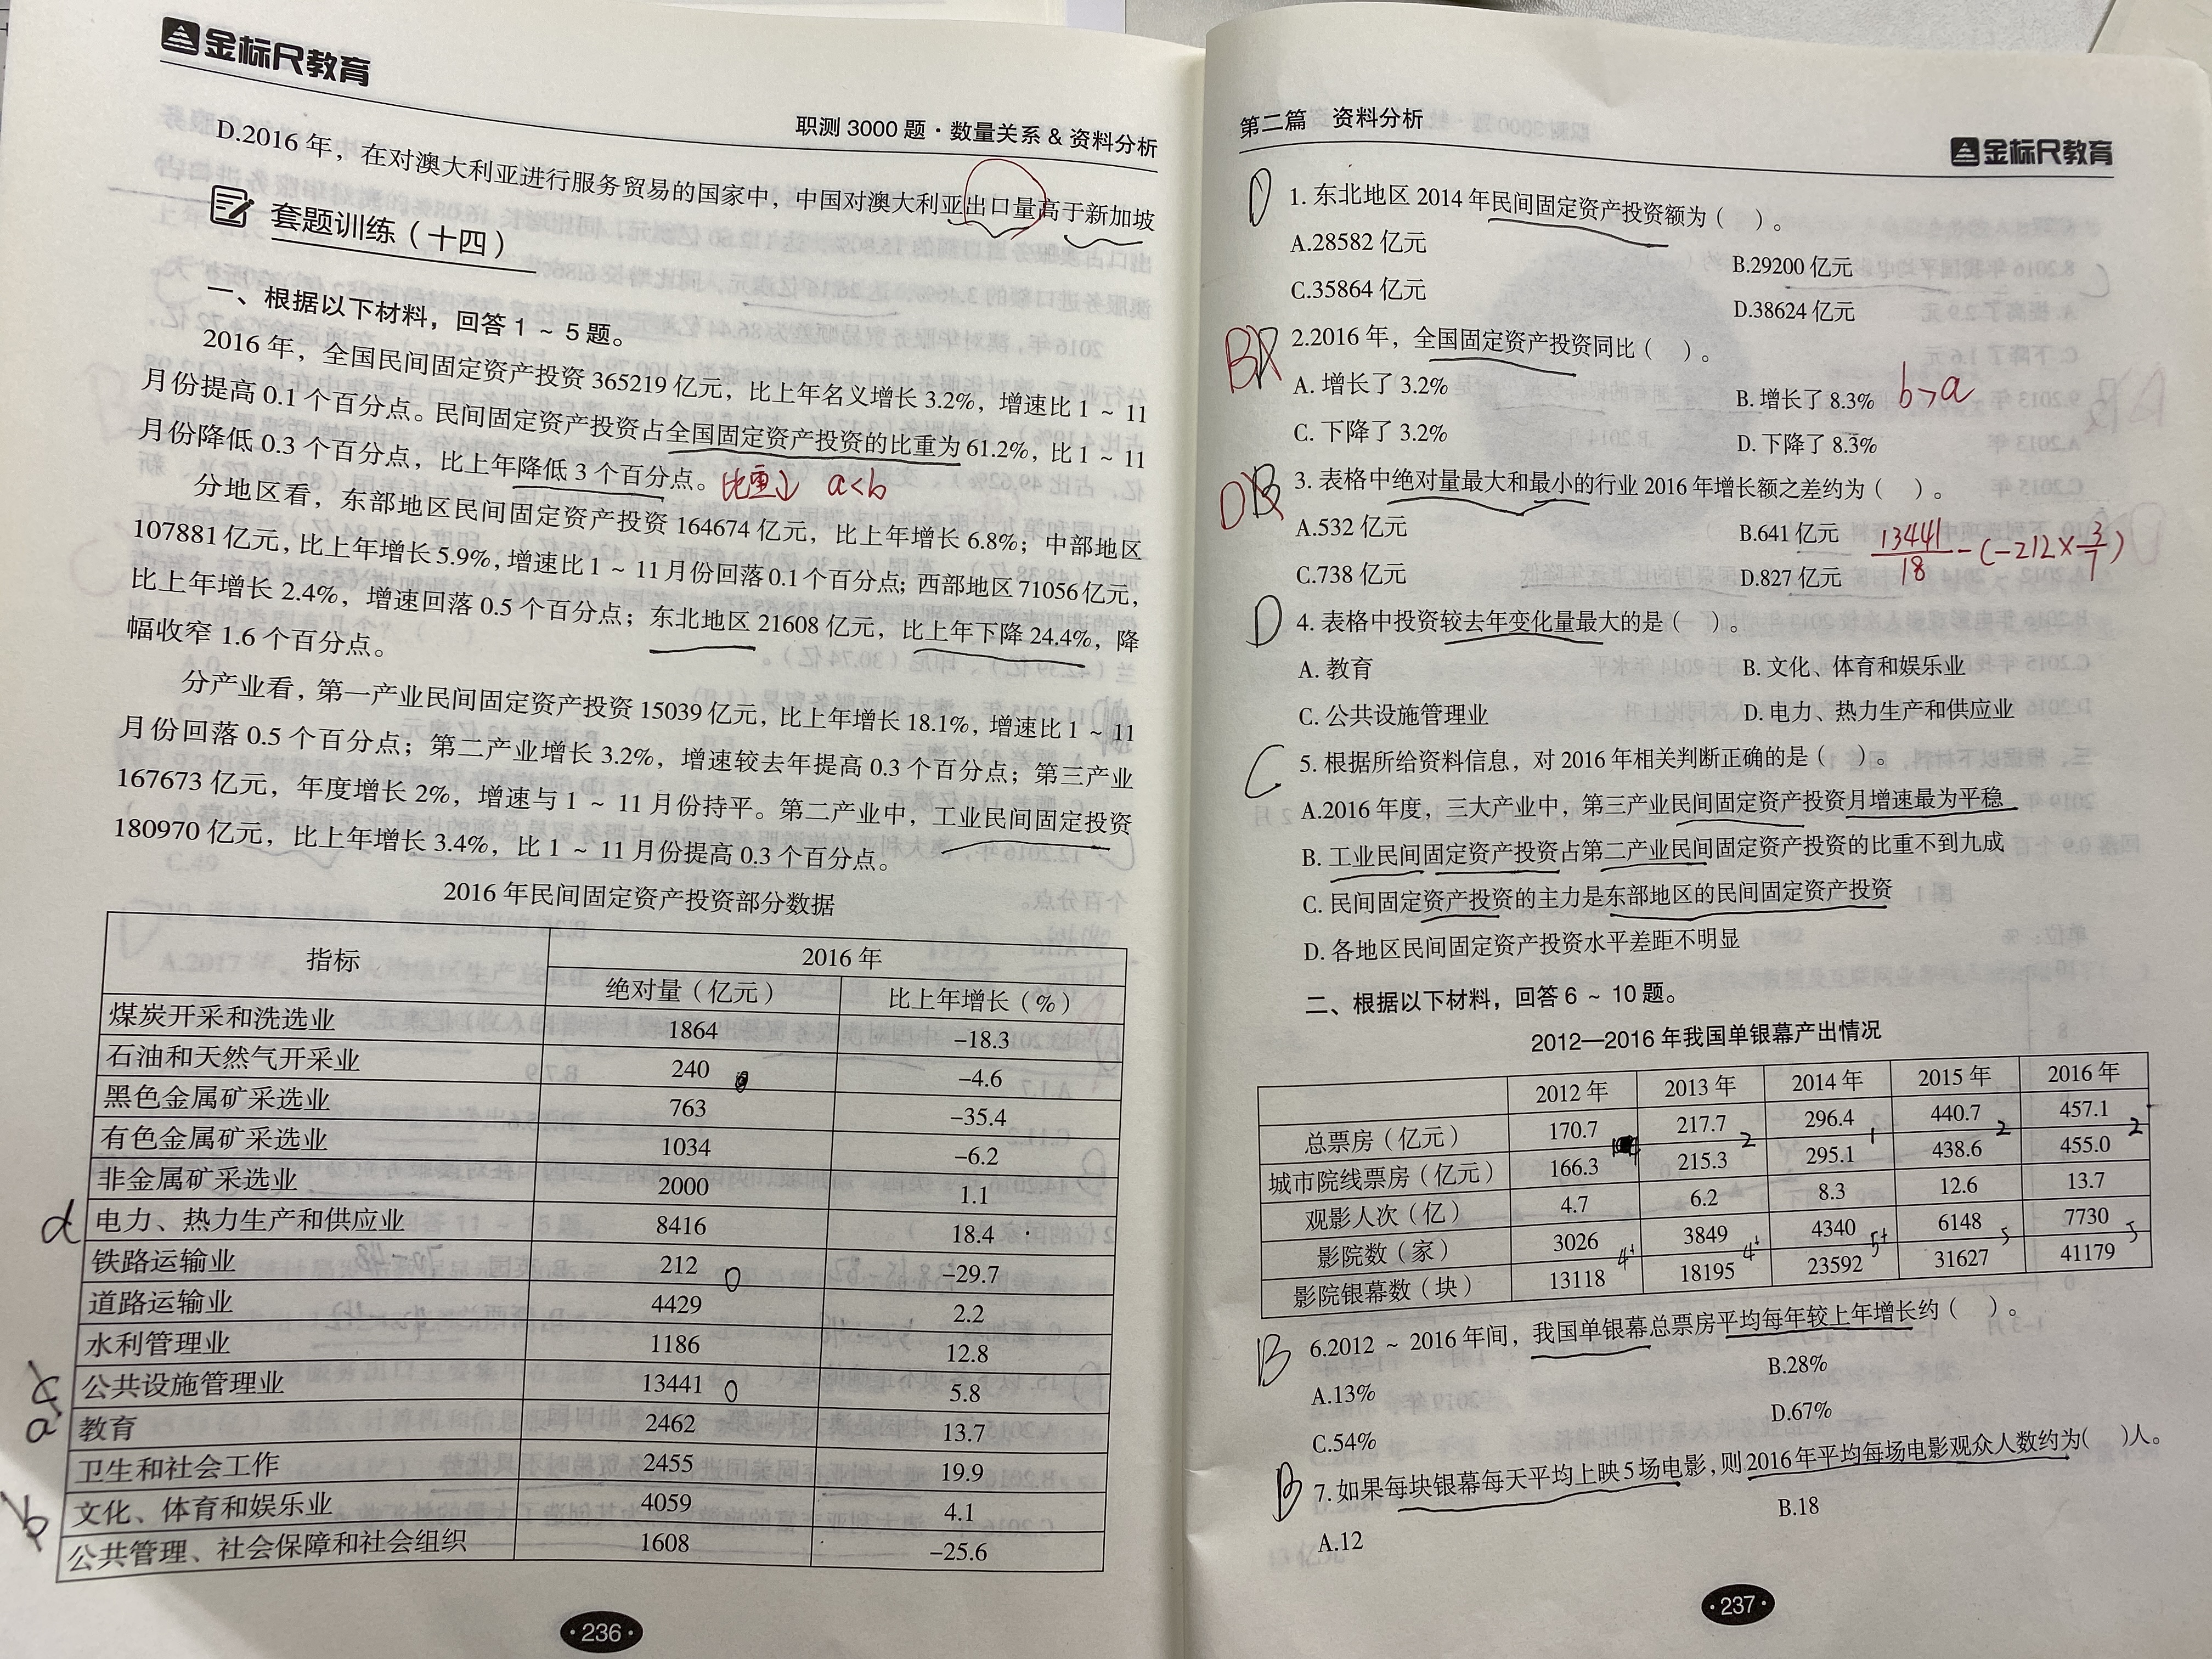 金标尺教育
职测 3000 题·数量关系 & 资料分析
D.2016 年，在对澳大利亚进行服务贸易的国家中，中国对澳大利亚出口量高于新加坡
套题训练（十四）
一、根据以下材料，回答 1 ~ 5 题。
2016 年，全国民间固定资产投资 365219 亿元，比上年名义增长 3.2%，增速比 1 ~ 11
月份提高 0.1 个百分点。民间固定资产投资占全国固定资产投资的比重为 61.2%，比 1 ~ 11
月份降低 0.3 个百分点，比上年降低 3 个百分点。 比重↓ a<b
分地区看，东部地区民间固定资产投资 164674 亿元，比上年增长 6.8%；中部地区
107881 亿元，比上年增长 5.9%，增速比 1 ~ 11 月份回落 0.1 个百分点；西部地区 71056 亿元，
比上年增长 2.4%，增速回落 0.5 个百分点；东北地区 21608 亿元，比上年下降 24.4%，降
幅收窄 1.6 个百分点。
分产业看，第一产业民间固定资产投资 15039 亿元，比上年增长 18.1%，增速比 1 ~ 11
月份回落 0.5 个百分点；第二产业增长 3.2%，增速较去年提高 0.3 个百分点；第三产业
167673 亿元，年度增长 2%，增速与 1 ~ 11 月份持平。第二产业中，工业民间固定投资
180970 亿元，比上年增长 3.4%，比 1 ~ 11 月份提高 0.3 个百分点。
2016 年民间固定资产投资部分数据
指标 2016 年
绝对量（亿元） 比上年增长（%）
煤炭开采和洗选业 1864 –18.3
石油和天然气开采业 240 –4.6
黑色金属矿采选业 763 –35.4
有色金属矿采选业 1034 –6.2
非金属矿采选业 2000 1.1
d 电力、热力生产和供应业 8416 18.4
铁路运输业 212 –29.7
道路运输业 4429 2.2
水利管理业 1186 12.8
c 公共设施管理业 13441 5.8
a 教育 2462 13.7
卫生和社会工作 2455 19.9
b 文化、体育和娱乐业 4059 4.1
公共管理、社会保障和社会组织 1608 –25.6
·236·
第二篇 资料分析
金标尺教育
D 1. 东北地区 2014 年民间固定资产投资额为（ ）。
A.28582 亿元
B.29200 亿元
C.35864 亿元
D.38624 亿元
B 2.2016 年，全国固定资产投资同比（ ）。
A. 增长了 3.2%
B. 增长了 8.3% b>a
C. 下降了 3.2%
D. 下降了 8.3%
D B 3. 表格中绝对量最大和最小的行业 2016 年增长额之差约为（ ）。
A.532 亿元
B.641 亿元
C.738 亿元
D.827 亿元
13441/18 - (-212×3/7)
D 4. 表格中投资较去年变化量最大的是（ ）。
A. 教育
B. 文化、体育和娱乐业
C. 公共设施管理业
D. 电力、热力生产和供应业
C 5. 根据所给资料信息，对 2016 年相关判断正确的是（ ）。
A.2016 年度，三大产业中，第三产业民间固定资产投资月增速最为平稳
B. 工业民间固定资产投资占第二产业民间固定资产投资的比重不到九成
C. 民间固定资产投资的主力是东部地区的民间固定资产投资
D. 各地区民间固定资产投资水平差距不明显
二、根据以下材料，回答 6 ~ 10 题。
2012—2016 年我国单银幕产出情况
2012 年 2013 年 2014 年 2015 年 2016 年
总票房（亿元） 170.7 217.7 296.4 440.7 457.1
城市院线票房（亿元） 166.3 215.3 295.1 438.6 455.0
观影人次（亿） 4.7 6.2 8.3 12.6 13.7
影院数（家） 3026 3849 4340 6148 7730
影院银幕数（块） 13118 18195 23592 31627 41179
B 6.2012 ~ 2016 年间，我国单银幕总票房平均每年较上年增长约（ ）。
A.13%
B.28%
C.54%
D.67%
B 7. 如果每块银幕每天平均上映 5 场电影，则 2016 年平均每场电影观众人数约为（ ）人。
A.12
B.18
·237·